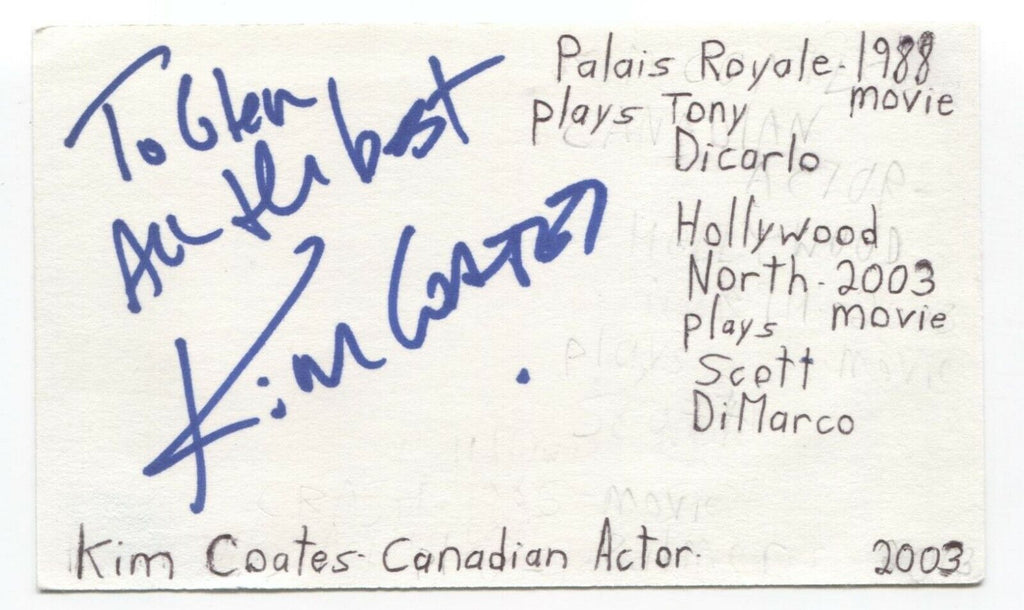 To Glen
All the best
Kim Coates
Palais Royale-1988
plays Tony movie
Dicarlo
Hollywood
North-2003
plays movie
Scott
DiMarco
Kim Coates-Canadian Actor. 2003